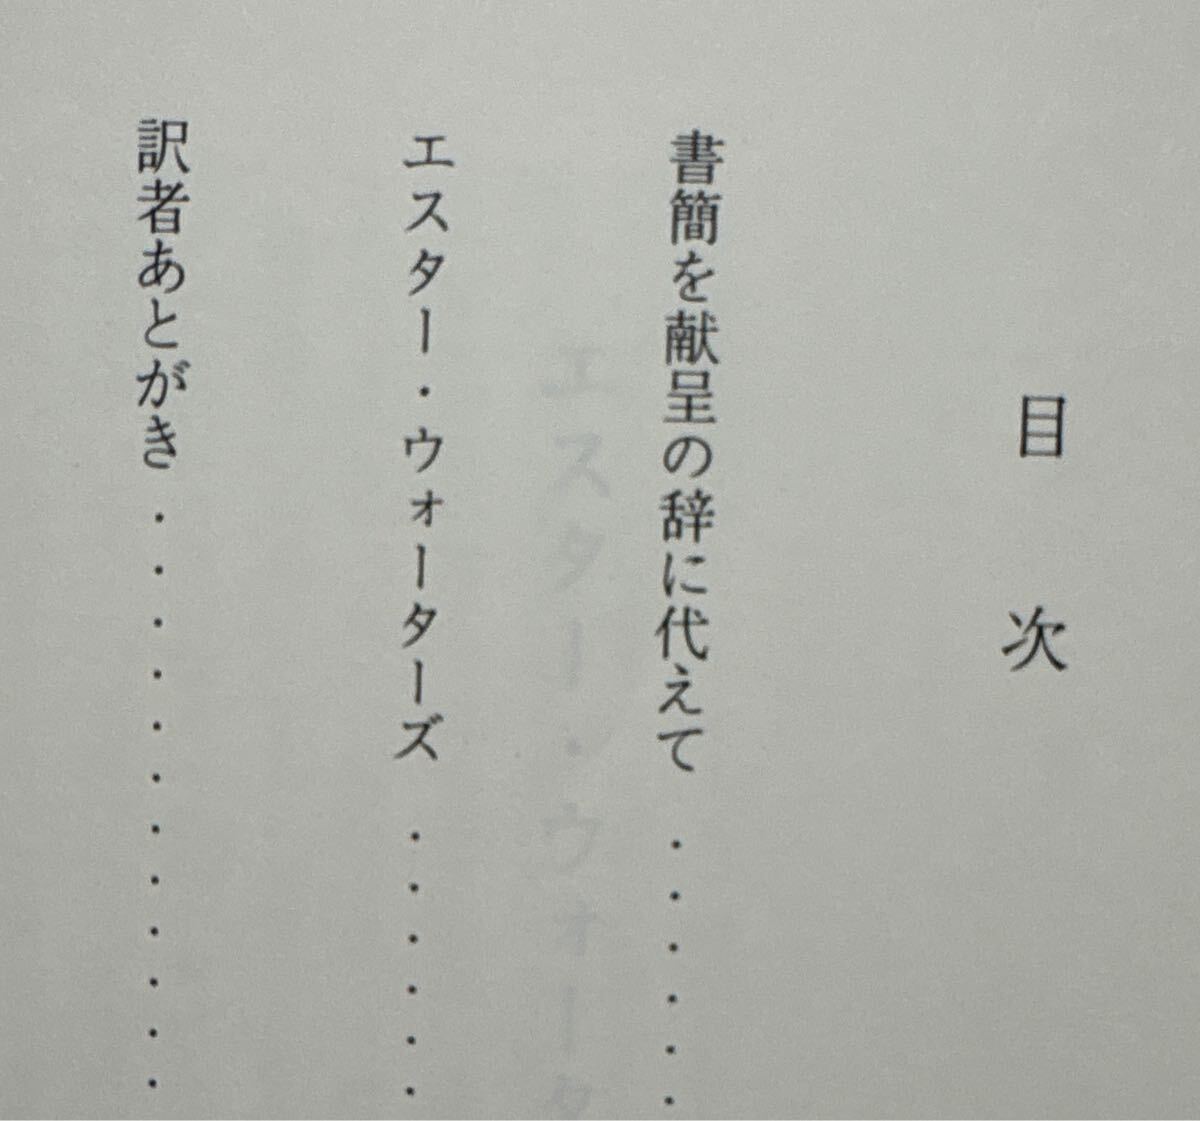 目次
書簡を献呈の辞に代えて・・・・・・
エスター・ウォーターズ・・・・・・
訳者あとがき・・・・・・・・・・・・